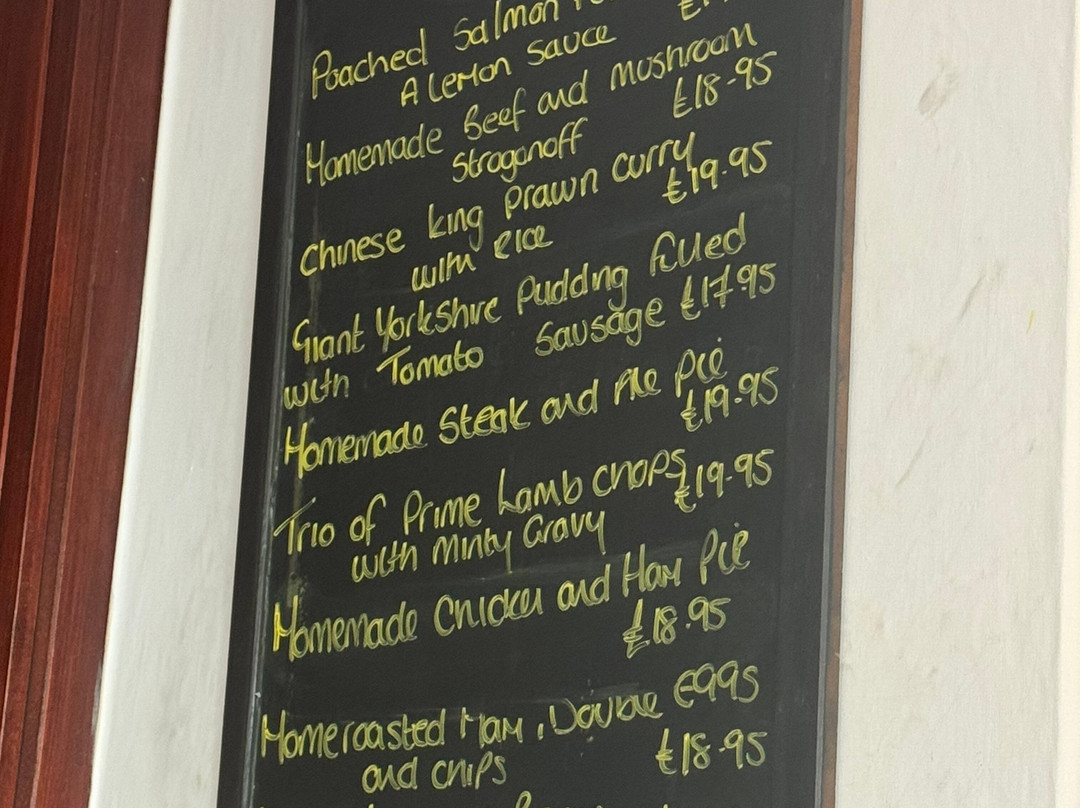 Poached Salmon
A Lemon Sauce
Homemade Beef and mushroom
Stroganoff £18.95
Chinese king prawn curry
with rice £19.95
Giant Yorkshire Pudding filled
with Tomato Sausage £17.95
Homemade Steak and Ale Pie
£19.95
Trio of Prime Lamb chops
with Minty Gravy £19.95
Homemade Chicken and Ham Pie
£18.95
Homeroasted Ham, Double Eggs
and chips £18.95